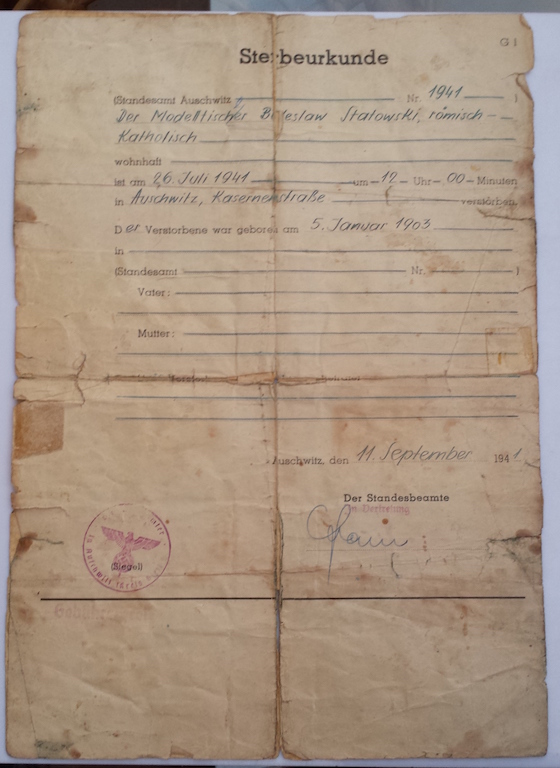 G I
Sterbeurkunde
(Standesamt Auschwitz Nr. 1941 )
Der Modelltischler Boleslaw Statowski, römisch-
Katholisch
wohnhaft
ist am 26. Juli 1941 um 12 Uhr 00 Minuten
in Auschwitz, Kasernenstraße verstorben.
Der Verstorbene war geboren am 5. Januar 1903
in
(Standesamt Nr. )
Vater:
Mutter:
Auschwitz, den 11. September 1941
Der Standesbeamte
In Vertretung
(Siegel)